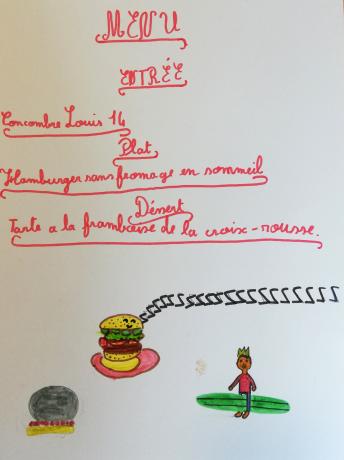 MENU
ENTRÉE
Concombre Louis 14
Plat
Hamburger sans fromage en sommeil
Déssert
Tarte a la framboise de la croix-rousse.
ZZZZZZZZZZZZZZZZZZ